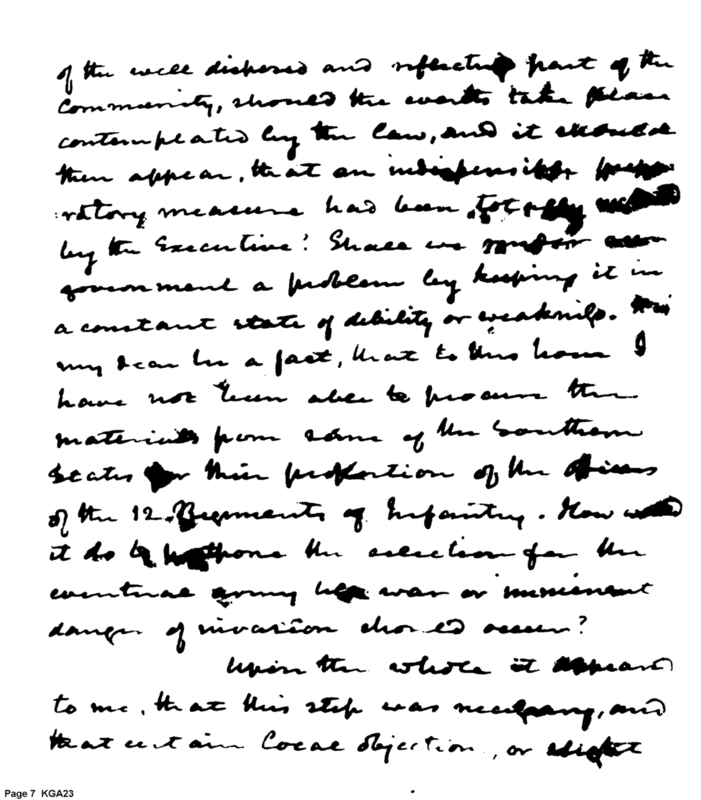 of the well disposed and reflecting part of the
Community, should the events take place
contemplated by the law, and it should
then appear, that an indispensible prepa
ratory measure had been totally
by the Executive? Shall we render our
government a problem by keeping it in
a constant state of debility or weakness.
my dear be a fact, that to this hour I
have not been able to procure the
materials from some of the Southern
States for their proportion of the officers
of the 12 Regiments of Infantry. How would
it do to postpone the selection for the
eventual army till war or imminent
danger of invasion should occur?
Upon the whole it appeared
to me, that this step was necessary, and
that certain local objection, or slight
Page 7 KGA23